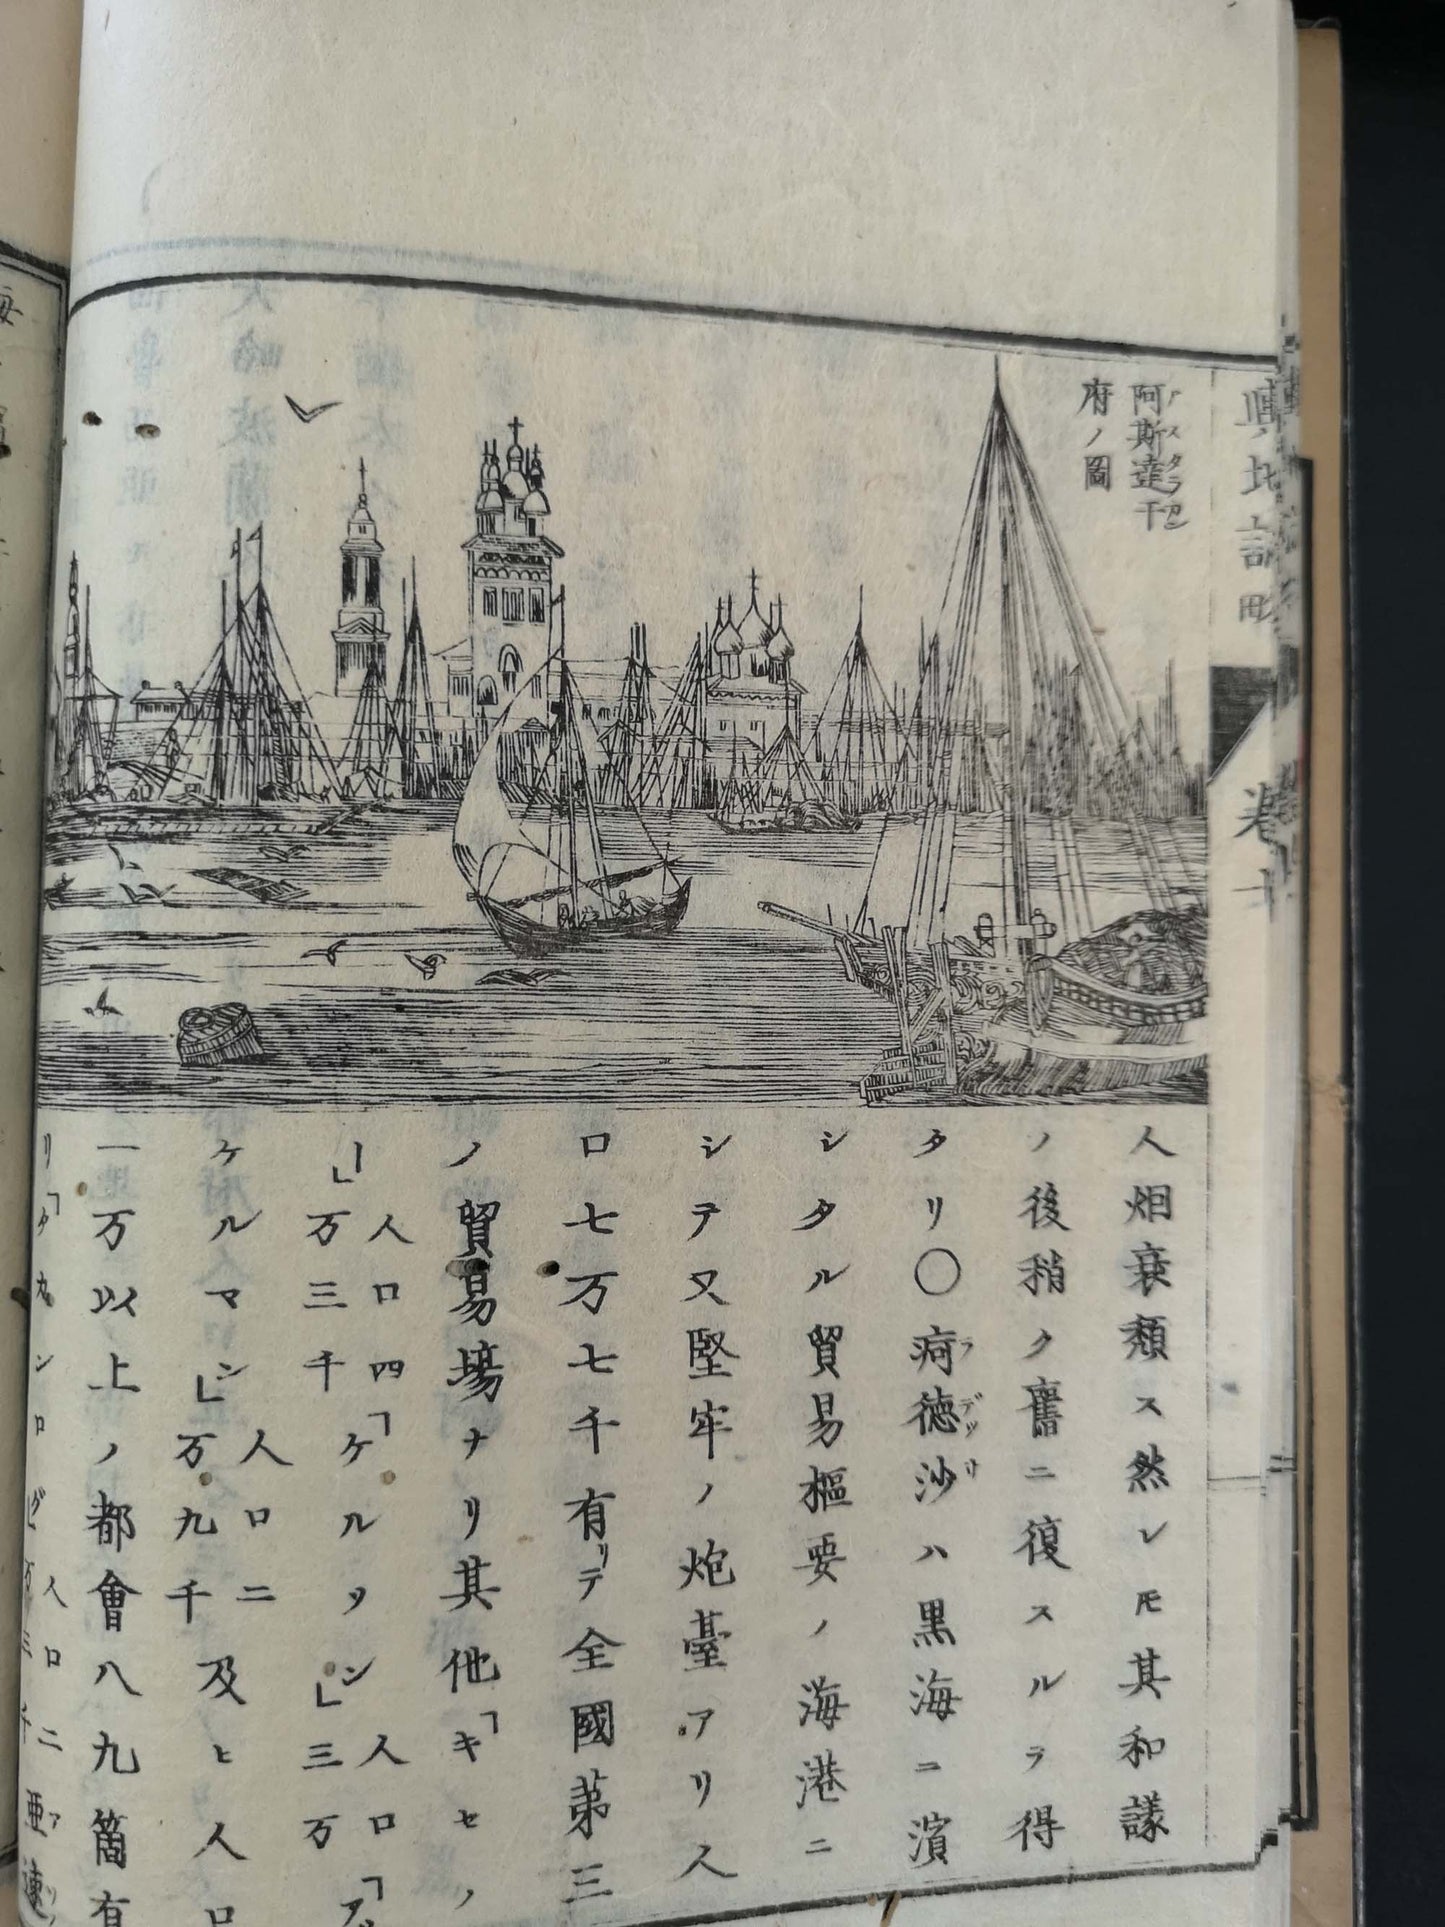 阿斯達干
アスタラカン
府ノ圖
輿地誌畧
卷七
人烟衰頽ス然レ𪜈其和議
ノ後稍ク舊ニ復スルヲ得
タリ〇疴德沙ハ黒海ニ濱
ヲデッサ
シタル貿易樞要ノ海港ニ
シテ又堅牢ノ炮臺アリ人
口七万七千有リテ全國第三
ノ貿易塲ナリ其他「キセノ
ー」人口四万三千「ケルソン」人口三万「ア
ケルマン」人口二万九千及ヒ人口
一万以上ノ都會八九箇有
リ「タガンログ」人口二万三千亜速